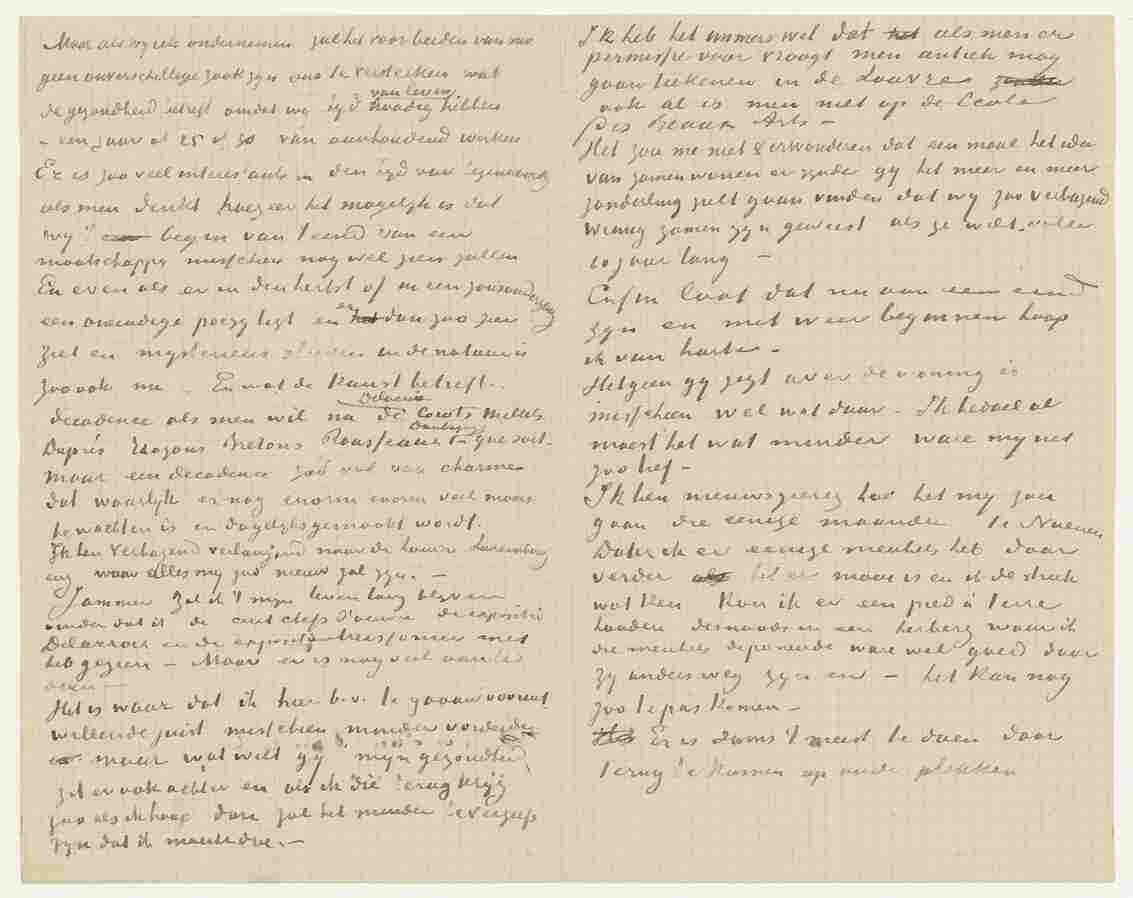 Maar als wij iets ondernemen zal het voor beiden van ons
geen onverschillige zaak zijn ons te versterken wat
de gezondheid betreft omdat wij tijd van leven noodig hebben
– een jaar of 25 of 30 van aanhoudend werken
Er is zoo veel interessants in den tijd van tegenwoordig
als men denkt hoezeer het mogelijk is dat
wij 't begin van 't eend van een
maatschappij misschien nog wel zien zullen
En even als er in den herfst of in een zonsondergang
een oneindige poezy ligt en er dan zoo zeer
ziet en mysterieus streven in de natuur is
zoo ook nu. En wat de kunst betreft.
decadence als men wil na de Delacroix Corots Millets
Duprés Troyons Bretons Rousseaux Daubigny – que soit –
maar een decadence zoó vol van charme
dat waarlijk er nog enorm enorm veel moois
te wachten is en dagelijks gemaakt wordt.
Ik ben verbazend verlangend naar de Louvre Luxembourg
enz waar alles mij zoo nieuw zal zijn. –
Jammer zal ik 't mijn leven lang blijven
vinden dat ik de cent chefs d'oeuvre de expositie
Delacroix en de expositie Meissonier niet
heb gezien – Maar er is nog veel aan te
doen –
Het is waar dat ik hier b.v. te gaauw vooruit
willende juist misschien minder vorderde
maar wat wilt gij mijn gezondheid
zit er ook achter en als ik die terug krijg
zoo als ik hoop dan zal het minder tevergeefs
zijn dat ik moeite doe. –
Ik heb het immers wel dat het als men er
permissie voor vraagt men antiek mag
gaan teekenen in de Louvre
ook al is men niet op de Ecole
Des Beaux Arts –
Het zou me niet verwonderen dat een maal het idee
van zamenwonen er zijnde gij het meer en meer
zonderling zult gaan vinden dat wij zoo verbazend
weinig zamen zijn geweest als ge wilt, vollen
10 jaar lang –
Enfin laat dat nu aan een eind
zijn en niet weer beginnen hoop
ik van harte –
Hetgeen gij zegt over de woning is
misschien wel wat duur – Ik bedoel al
moest het wat minder ware mij net
zoo lief –
Ik ben nieuwsgierig hoe het mij zou
gaan die eenige maanden te Nuenen
Daar ik er eenige meubels heb daar
verder het er mooi is en ik de streek
wat ken kon ik er een pied à terre
houden desnoods in een herberg waar ik
die meubels deponeerde ware wel goed daar
zij anders weg zijn en – het kan nog
zoo te pas komen –
Er is soms 't meest te doen door
terug te komen op oude plekken